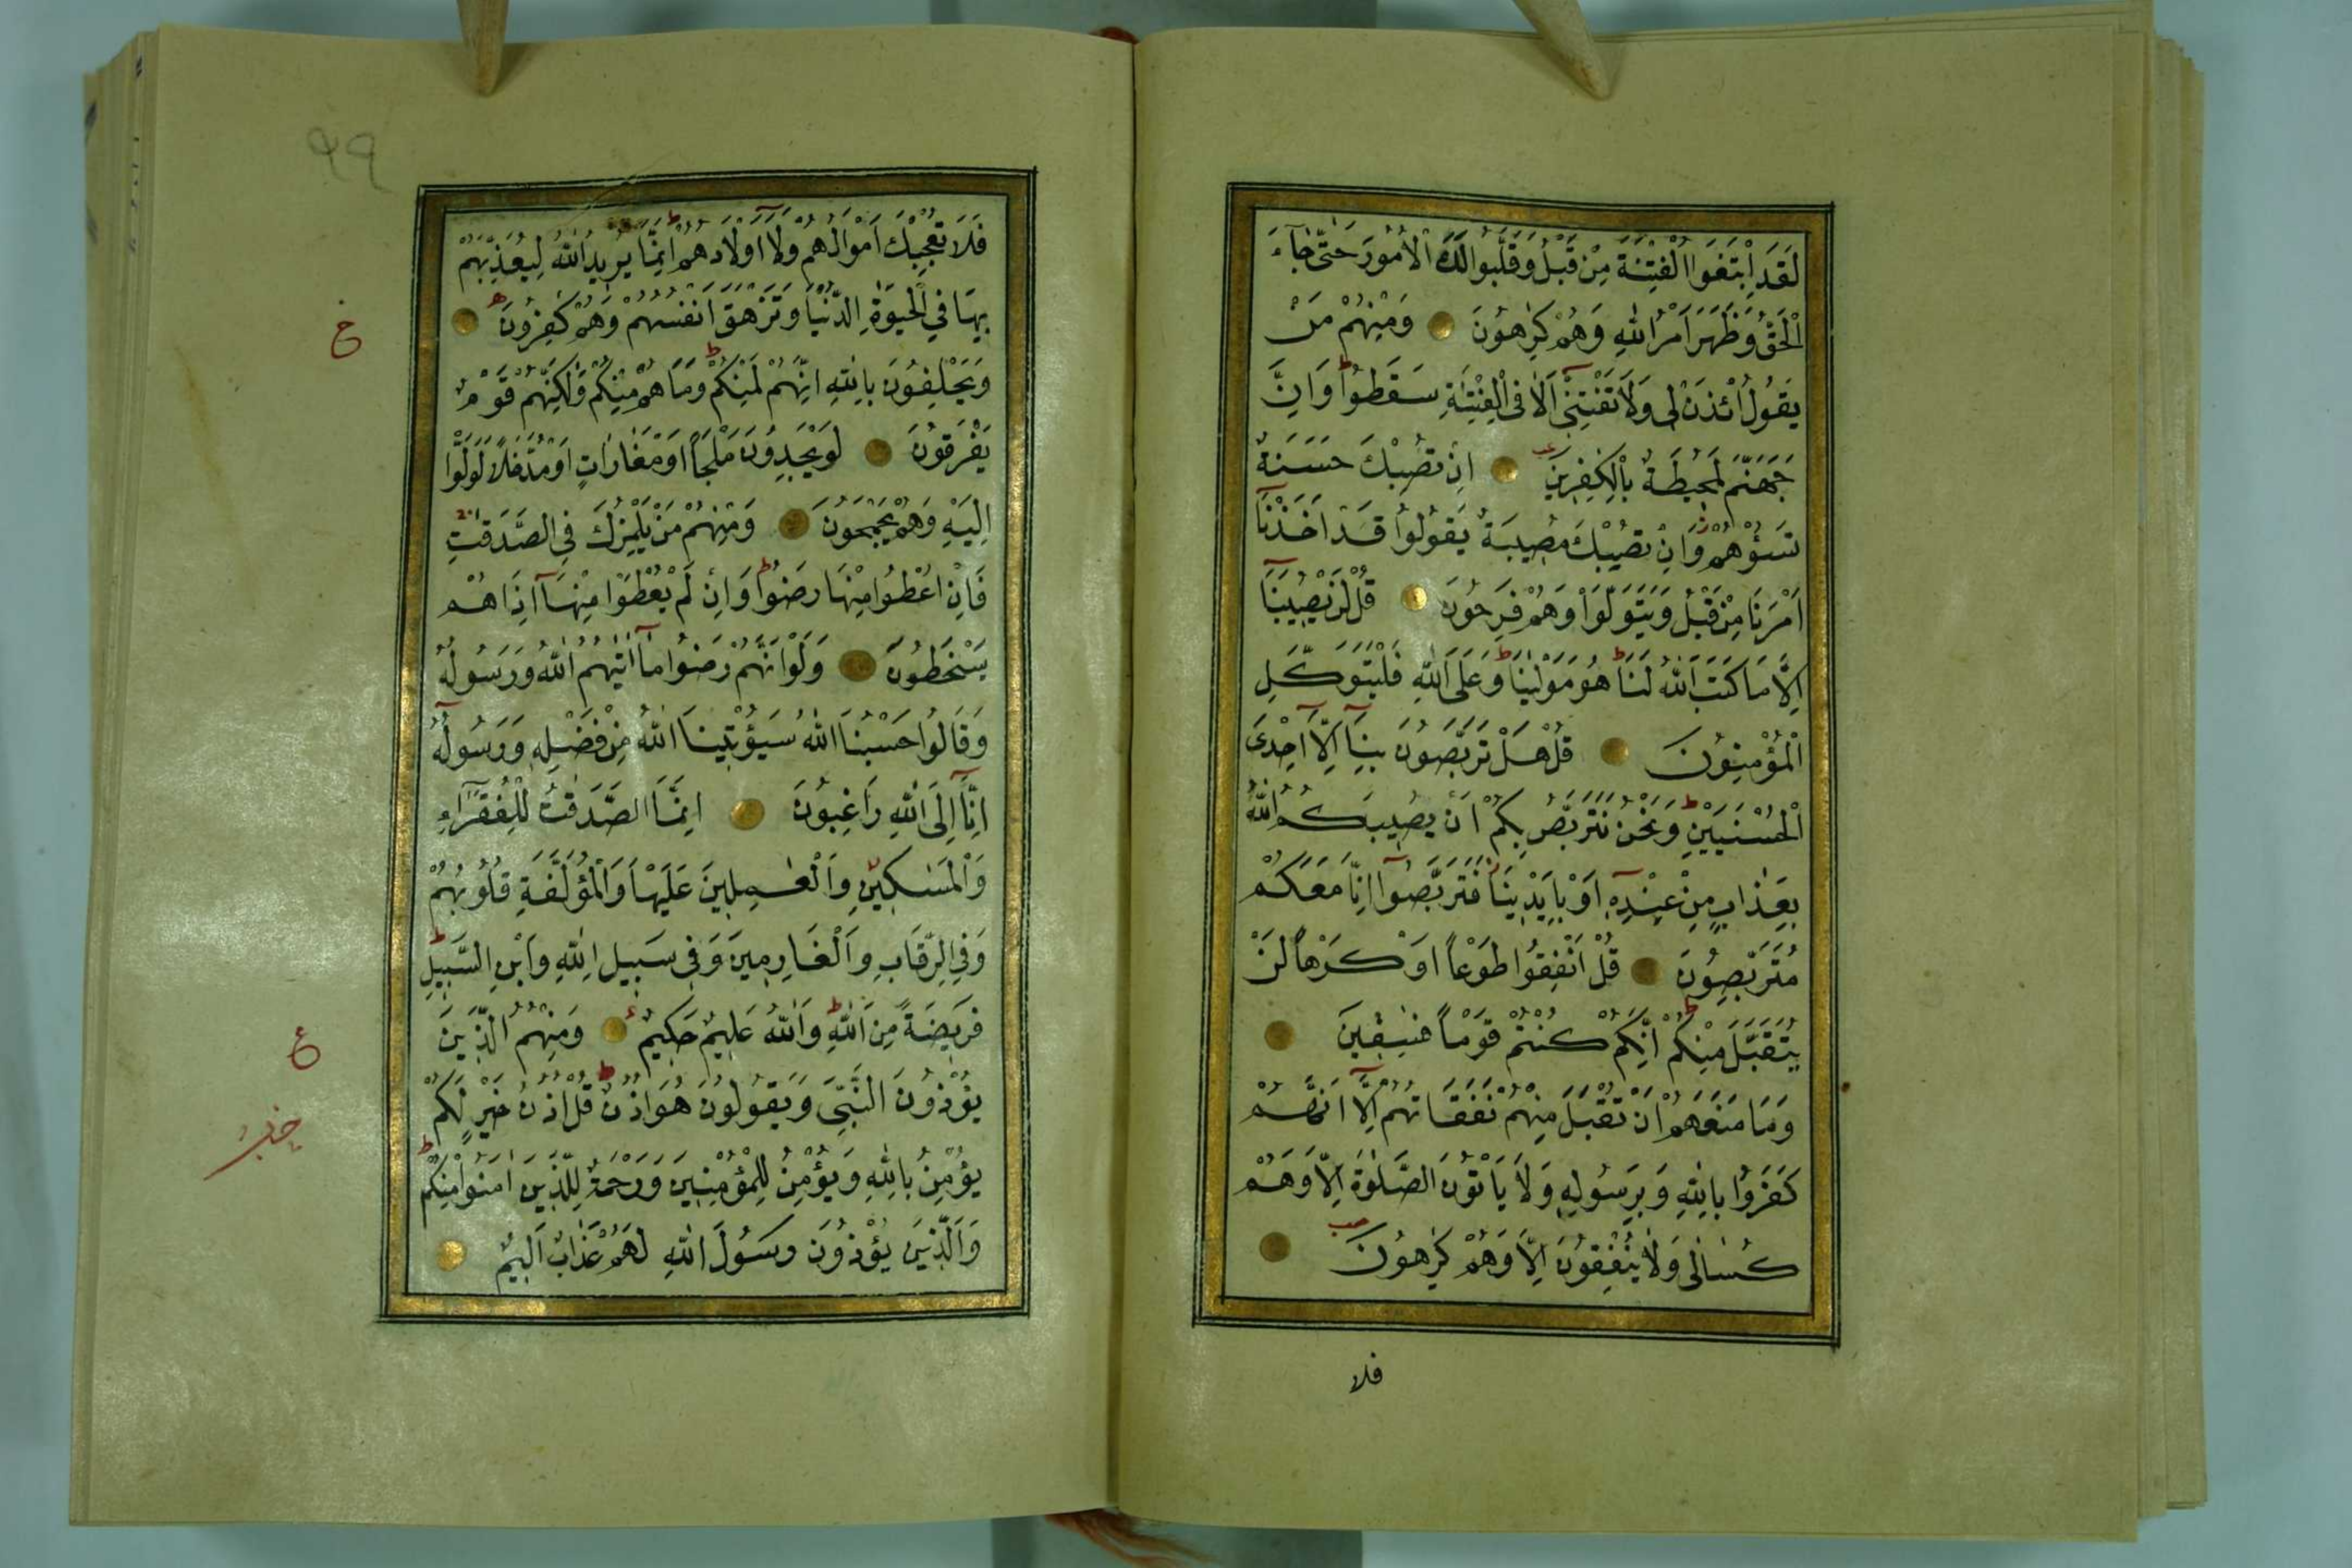 لَقَدِ ابْتَغَوُا الْفِتْنَةَ مِنْ قَبْلُ وَقَلَّبُوا لَكَ الْاُمُورَ حَتّٰى جَآءَ
الْحَقُّ وَظَهَرَ اَمْرُ اللّٰهِ وَهُمْ كٰرِهُونَ وَمِنْهُمْ مَنْ
يَقُولُ ائْذَنْ لٖى وَلَا تَفْتِنّٖى اَلَا فِى الْفِتْنَةِ سَقَطُوا وَاِنَّ
جَهَنَّمَ لَمُحٖيطَةٌ بِالْكٰفِرٖينَ اِنْ تُصِبْكَ حَسَنَةٌ
تَسُؤْهُمْ وَاِنْ تُصِبْكَ مُصٖيبَةٌ يَقُولُوا قَدْ اَخَذْنَٓا
اَمْرَنَا مِنْ قَبْلُ وَيَتَوَلَّوْا وَهُمْ فَرِحُونَ قُلْ لَنْ يُصٖيبَنَٓا
اِلَّا مَا كَتَبَ اللّٰهُ لَنَا هُوَ مَوْلٰينَا وَعَلَى اللّٰهِ فَلْيَتَوَكَّلِ
الْمُؤْمِنُونَ قُلْ هَلْ تَرَبَّصُونَ بِنَٓا اِلَّٓا اِحْدَى
الْحُسْنَيَيْنِ وَنَحْنُ نَتَرَبَّصُ بِكُمْ اَنْ يُصٖيبَكُمُ اللّٰهُ
بِعَذَابٍ مِنْ عِنْدِهٖٓ اَوْ بِاَيْدٖينَا فَتَرَبَّصُٓوا اِنَّا مَعَكُمْ
مُتَرَبِّصُونَ قُلْ اَنْفِقُوا طَوْعًا اَوْ كَرْهًا لَنْ
يُتَقَبَّلَ مِنْكُمْ اِنَّكُمْ كُنْتُمْ قَوْمًا فٰسِقٖينَ
وَمَا مَنَعَهُمْ اَنْ تُقْبَلَ مِنْهُمْ نَفَقَاتُهُمْ اِلَّٓا اَنَّهُمْ
كَفَرُوا بِاللّٰهِ وَبِرَسُولِهٖ وَلَا يَأْتُونَ الصَّلٰوةَ اِلَّا وَهُمْ
كُسَالٰى وَلَا يُنْفِقُونَ اِلَّا وَهُمْ كٰرِهُونَ
فلا
٩٩
فَلَا تُعْجِبْكَ اَمْوَالُهُمْ وَلَٓا اَوْلَادُهُمْ اِنَّمَا يُرٖيدُ اللّٰهُ لِيُعَذِّبَهُمْ
بِهَا فِى الْحَيٰوةِ الدُّنْيَا وَتَزْهَقَ اَنْفُسُهُمْ وَهُمْ كٰفِرُونَ
وَيَحْلِفُونَ بِاللّٰهِ اِنَّهُمْ لَمِنْكُمْ وَمَا هُمْ مِنْكُمْ وَلٰكِنَّهُمْ قَوْمٌ
يَفْرَقُونَ لَوْ يَجِدُونَ مَلْجَأً اَوْ مَغَارَاتٍ اَوْ مُدَّخَلًا لَوَلَّوْا
اِلَيْهِ وَهُمْ يَجْمَحُونَ وَمِنْهُمْ مَنْ يَلْمِزُكَ فِى الصَّدَقٰتِ
فَاِنْ اُعْطُوا مِنْهَا رَضُوا وَاِنْ لَمْ يُعْطَوْا مِنْهَٓا اِذَا هُمْ
يَسْخَطُونَ وَلَوْ اَنَّهُمْ رَضُوا مَٓا اٰتٰيهُمُ اللّٰهُ وَرَسُولُهُ
وَقَالُوا حَسْبُنَا اللّٰهُ سَيُؤْتٖينَا اللّٰهُ مِنْ فَضْلِهٖ وَرَسُولُهُٓ
اِنَّٓا اِلَى اللّٰهِ رَاغِبُونَ اِنَّمَا الصَّدَقٰتُ لِلْفُقَرَٓاءِ
وَالْمَسٰكٖينِ وَالْعٰمِلٖينَ عَلَيْهَا وَالْمُؤَلَّفَةِ قُلُوبُهُمْ
وَفِى الرِّقَابِ وَالْغَارِمٖينَ وَفٖى سَبٖيلِ اللّٰهِ وَابْنِ السَّبٖيلِ
فَرٖيضَةً مِنَ اللّٰهِ وَاللّٰهُ عَلٖيمٌ حَكٖيمٌ وَمِنْهُمُ الَّذٖينَ
يُؤْذُونَ النَّبِىَّ وَيَقُولُونَ هُوَ اُذُنٌ قُلْ اُذُنُ خَيْرٍ لَكُمْ
يُؤْمِنُ بِاللّٰهِ وَيُؤْمِنُ لِلْمُؤْمِنٖينَ وَرَحْمَةٌ لِلَّذٖينَ اٰمَنُوا مِنْكُمْ
وَالَّذٖينَ يُؤْذُونَ رَسُولَ اللّٰهِ لَهُمْ عَذَابٌ اَلٖيمٌ
ع